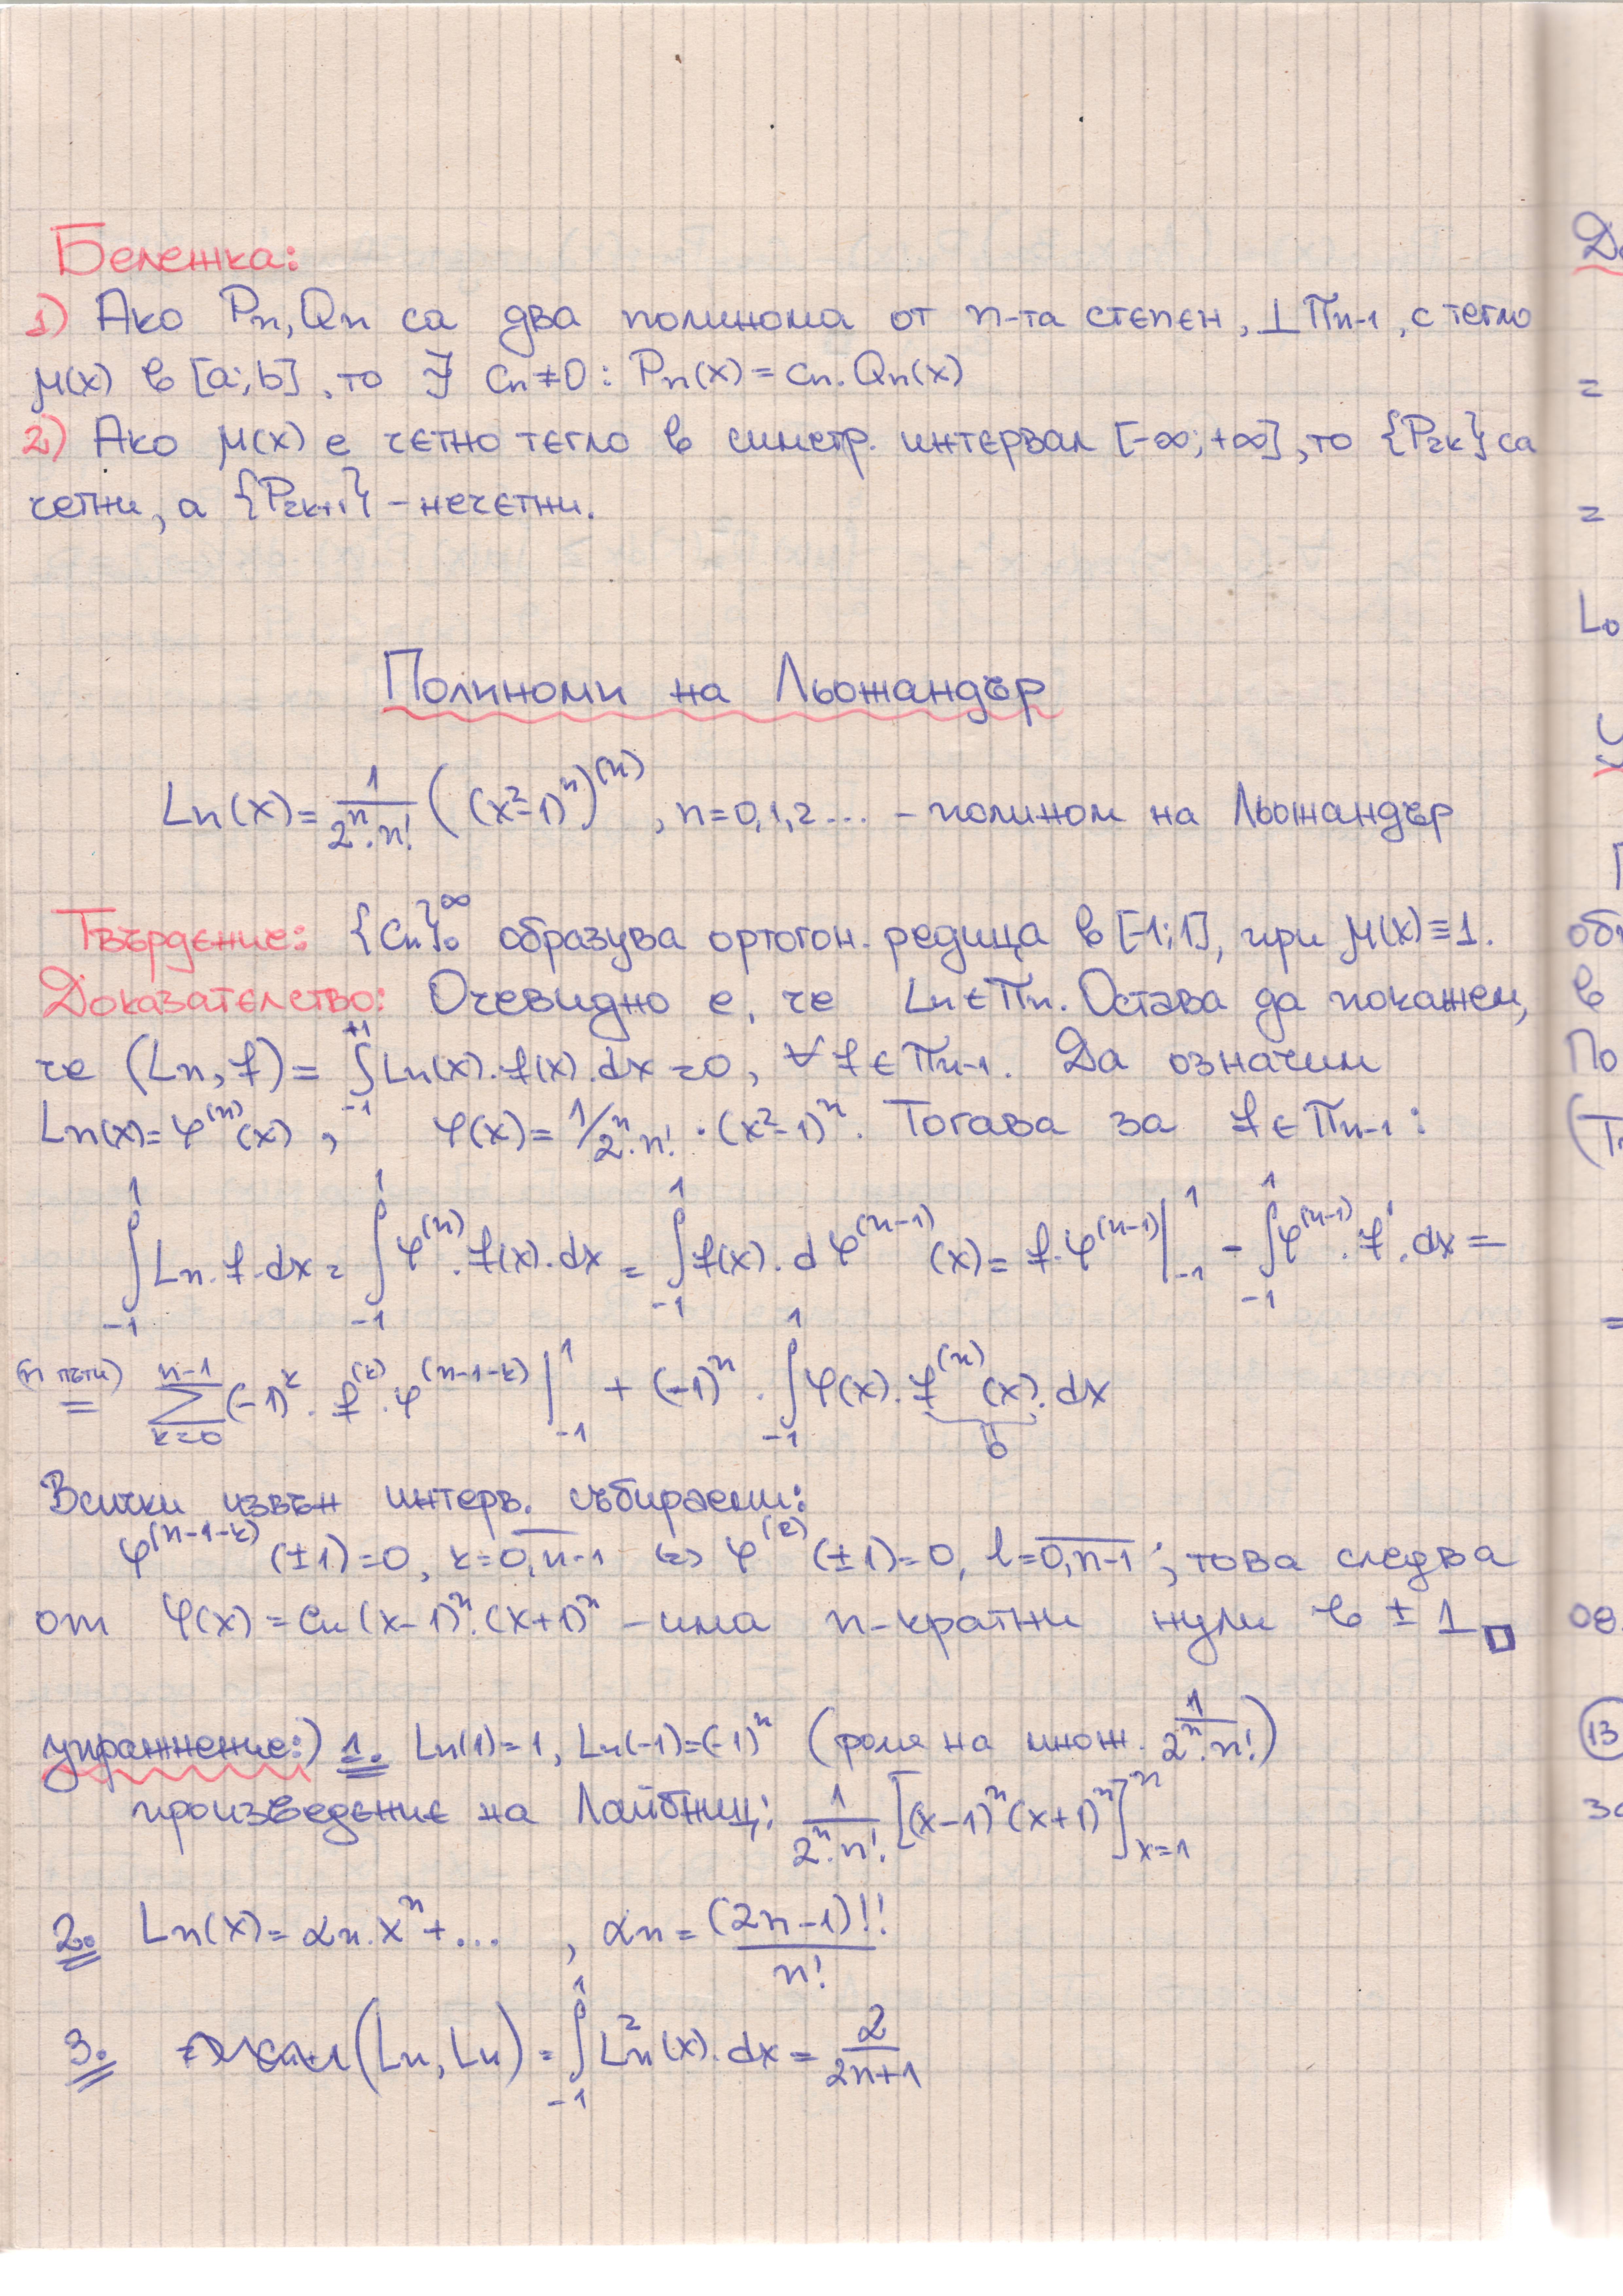 Бележка:
1) Ако Pn, Qn са два полинома от n-та степен, ⊥ πn-1, с тегло
μ(x) в [a;b], то ∃ cn≠0: Pn(x) = cn.Qn(x)
2) Ако μ(x) е четно тегло в симетр. интервал [-∞;+∞], то {P2k} са
четни, а {P2k+1} - нечетни.
Полиноми на Льожандър
Ln(x) = 1/(2^n.n!) ((x²-1)^n)^(n), n=0,1,2... - полином на Льожандър
Твърдение: {Cn}₀^∞ образува ортогон. редица в [-1;1], при μ(x)≡1.
Доказателство: Очевидно е, че Ln∈πn. Остава да покажем,
че (Ln, f) = ∫_{-1}^{+1} Ln(x).f(x).dx = 0, ∀ f∈πn-1. Да означим
Ln(x) = φ^(n)(x), φ(x) = 1/2^n.n! . (x²-1)^n. Тогава за f∈πn-1:
∫_{-1}^{1} Ln.f.dx = ∫_{-1}^{1} φ^(n).f(x).dx = ∫_{-1}^{1} f(x).dφ^(n-1)(x) = f.φ^(n-1)|_{-1}^{1} - ∫_{-1}^{1} φ^(n-1).f'.dx =
(n пъти) = Σ_{k=0}^{n-1} (-1)^k.f^(k).φ^(n-1-k)|_{-1}^{1} + (-1)^n.∫_{-1}^{1} φ(x).f^(n)(x).dx
0
Всички извън интегр. събираеми:
φ^(n-1-k)(±1)=0, k=0,n-1 <=> φ^(l)(±1)=0, l=0,n-1; това следва
от φ(x) = Cn(x-1)^n.(x+1)^n - има n-кратни нули в ±1 □
упражнение:) 1. Ln(1)=1, Ln(-1)=(-1)^n (роля на множ. 1/(2^n.n!))
произведение на Лайбниц: 1/(2^n.n!) [(x-1)^n(x+1)^n]^n_{x=1}
2. Ln(x) = αn.x^n+... , αn = (2n-1)!!/n!
3. (Ln, Ln) = ∫_{-1}^{1} Ln²(x).dx = 2/(2n+1)